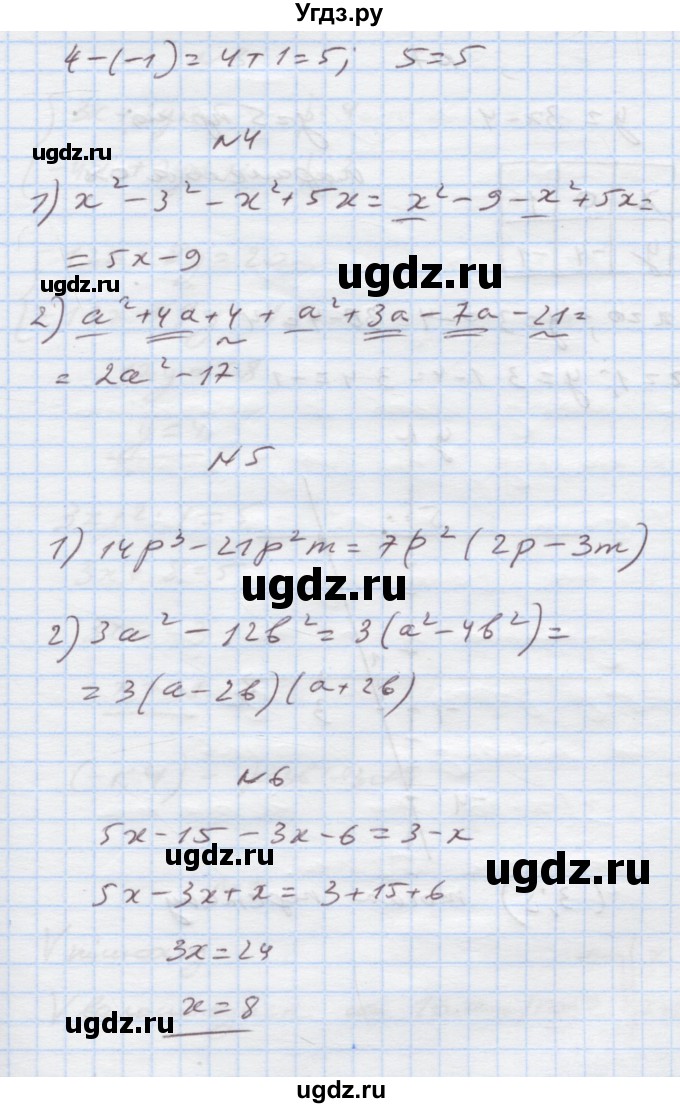 Угдз.ру
4-(-1)=4+1=5; 5=5
ugdz.ru
№4
1) x² - 3² - x² + 5x = x² - 9 - x² + 5x =
= 5x - 9
ugdz.ru
ugdz.ru
2) a² + 4a + 4 + a² + 3a - 7a - 21 =
= 2a² - 17
№5
1) 14p³ - 21p²m = 7p² (2p - 3m)
ugdz.ru
2) 3a² - 12b² = 3(a² - 4b²) =
= 3(a - 2b)(a + 2b)
№6
5x - 15 - 3x - 6 = 3 - x
ugdz.ru
ugdz.ru
5x - 3x + x = 3 + 15 + 6
3x = 24
x = 8
ugdz.ru
ugdz.ru